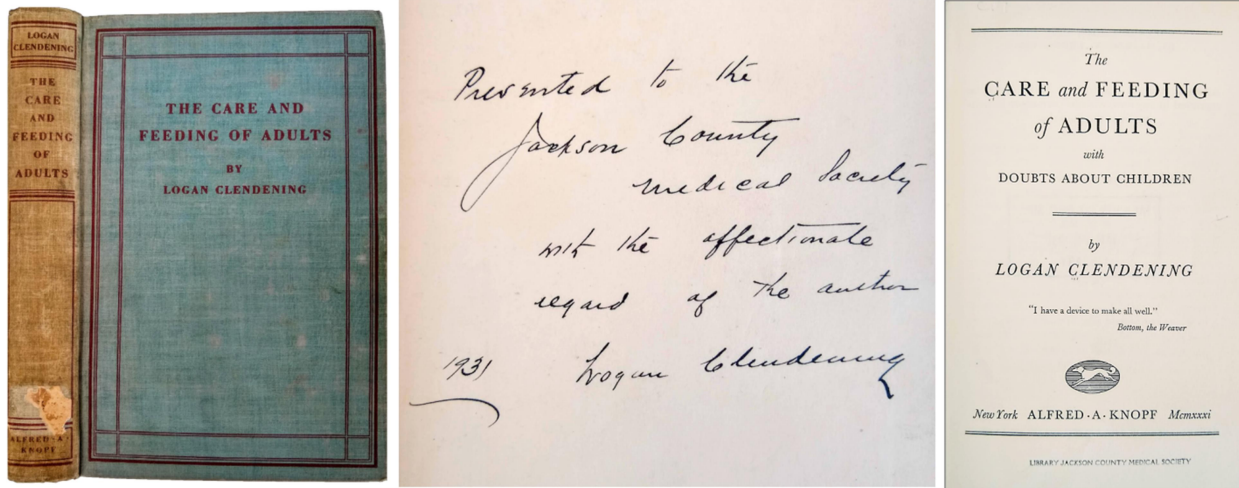 LOGAN
CLENDENING
THE
CARE
AND
FEEDING
OF
ADULTS
ALFRED · A ·
KNOPF
THE CARE AND
FEEDING OF ADULTS
BY
LOGAN CLENDENING
Presented to the
Jackson County
Medical Society
with the affectionate
regard of the author
1931 Logan Clendening
The
CARE and FEEDING
of ADULTS
with
DOUBTS ABOUT CHILDREN
by
LOGAN CLENDENING
"I have a device to make all well."
Bottom, the Weaver
New York ALFRED · A · KNOPF Mcmxxxi
LIBRARY JACKSON COUNTY MEDICAL SOCIETY